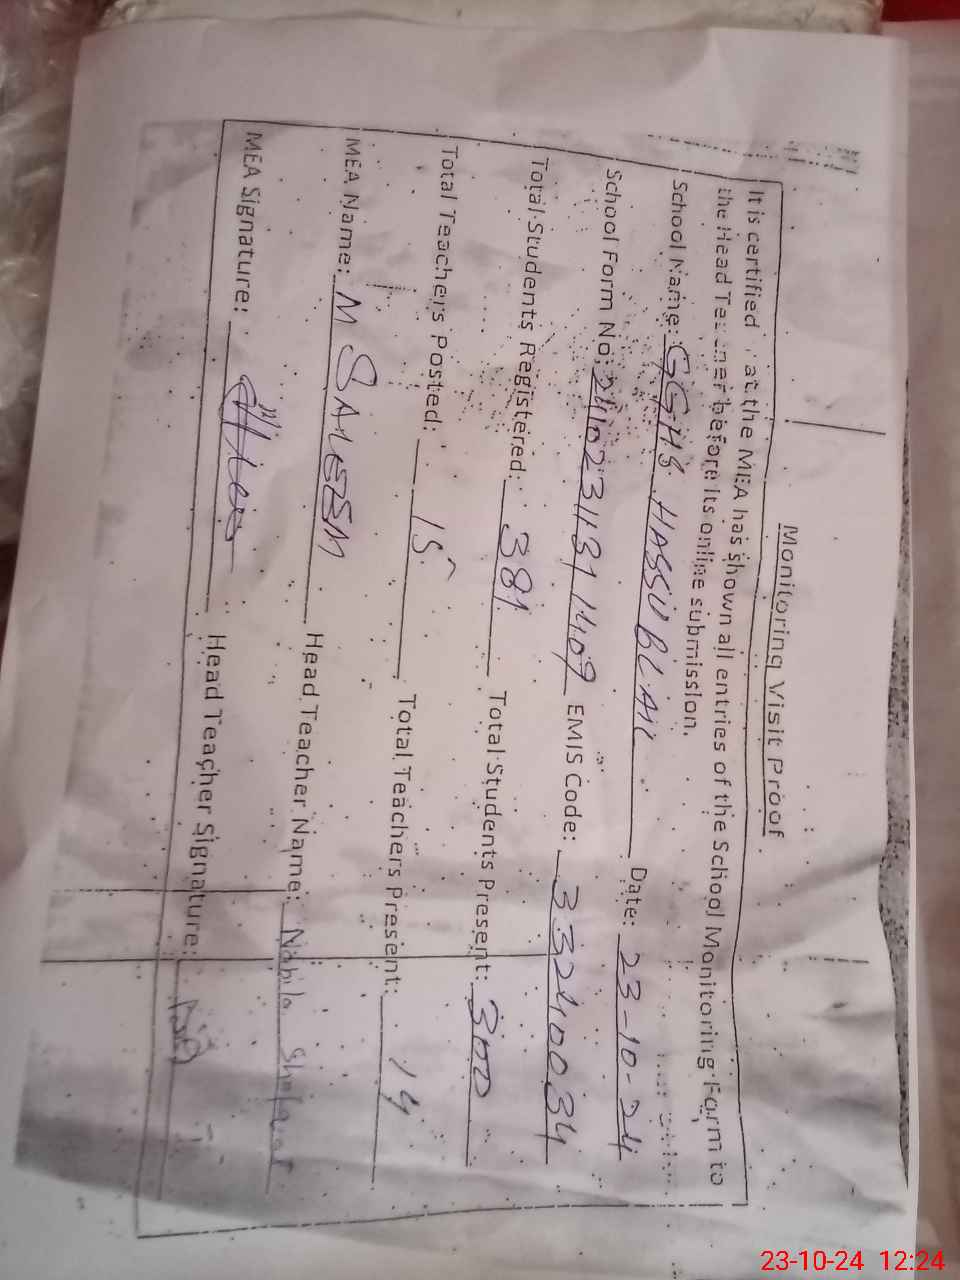 Monitoring Visit Proof
It is certified that the MEA has shown all entries of the School Monitoring Form to
the Head Teacher before its online submission.
School Name: GGHS HASSU BLAIL Date: 23-10-24
School Form No: 24102311311409 EMIS Code: 33240034
Total Students Registered: 381 Total Students Present: 300
Total Teachers Posted: 15 Total Teachers Present: 14
MEA Name: M SALEEM Head Teacher Name: Nabila
MEA Signature: Head Teacher Signature:
23-10-24 12:24